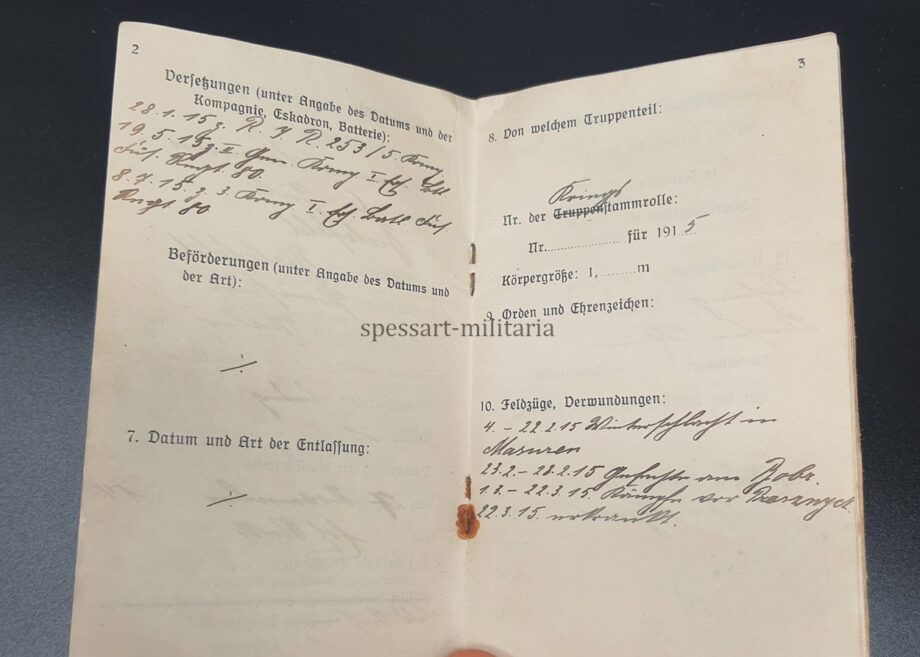 2
Versetzungen (unter Angabe des Datums und der
Kompagnie, Eskadron, Batterie):
28.1.15 z. R. I. R. 253/5. Komp
19.5.15 z. Gen. Komp I. Ers. Batl.
Füs. Regt. 80.
8.7.15. z. 3. Komp I. Ers. Batl Füs.
Regt 80
Beförderungen (unter Angabe des Datums und
der Art):
./.
7. Datum und Art der Entlassung:
./.
3
8. Von welchem Truppenteil:
Kriegs
Nr. der Truppenstammrolle:
Nr. für 1915
Körpergröße: 1, m
9. Orden und Ehrenzeichen:
spessart-militaria
10. Feldzüge, Verwundungen:
4. - 22.2.15 Winterschlacht in
Masuren
23.2. - 28.2.15 Gefechte am Bobr.
1.3. - 22.3.15. Kämpfe vor Prasznycz.
22.3.15. erkrankt.